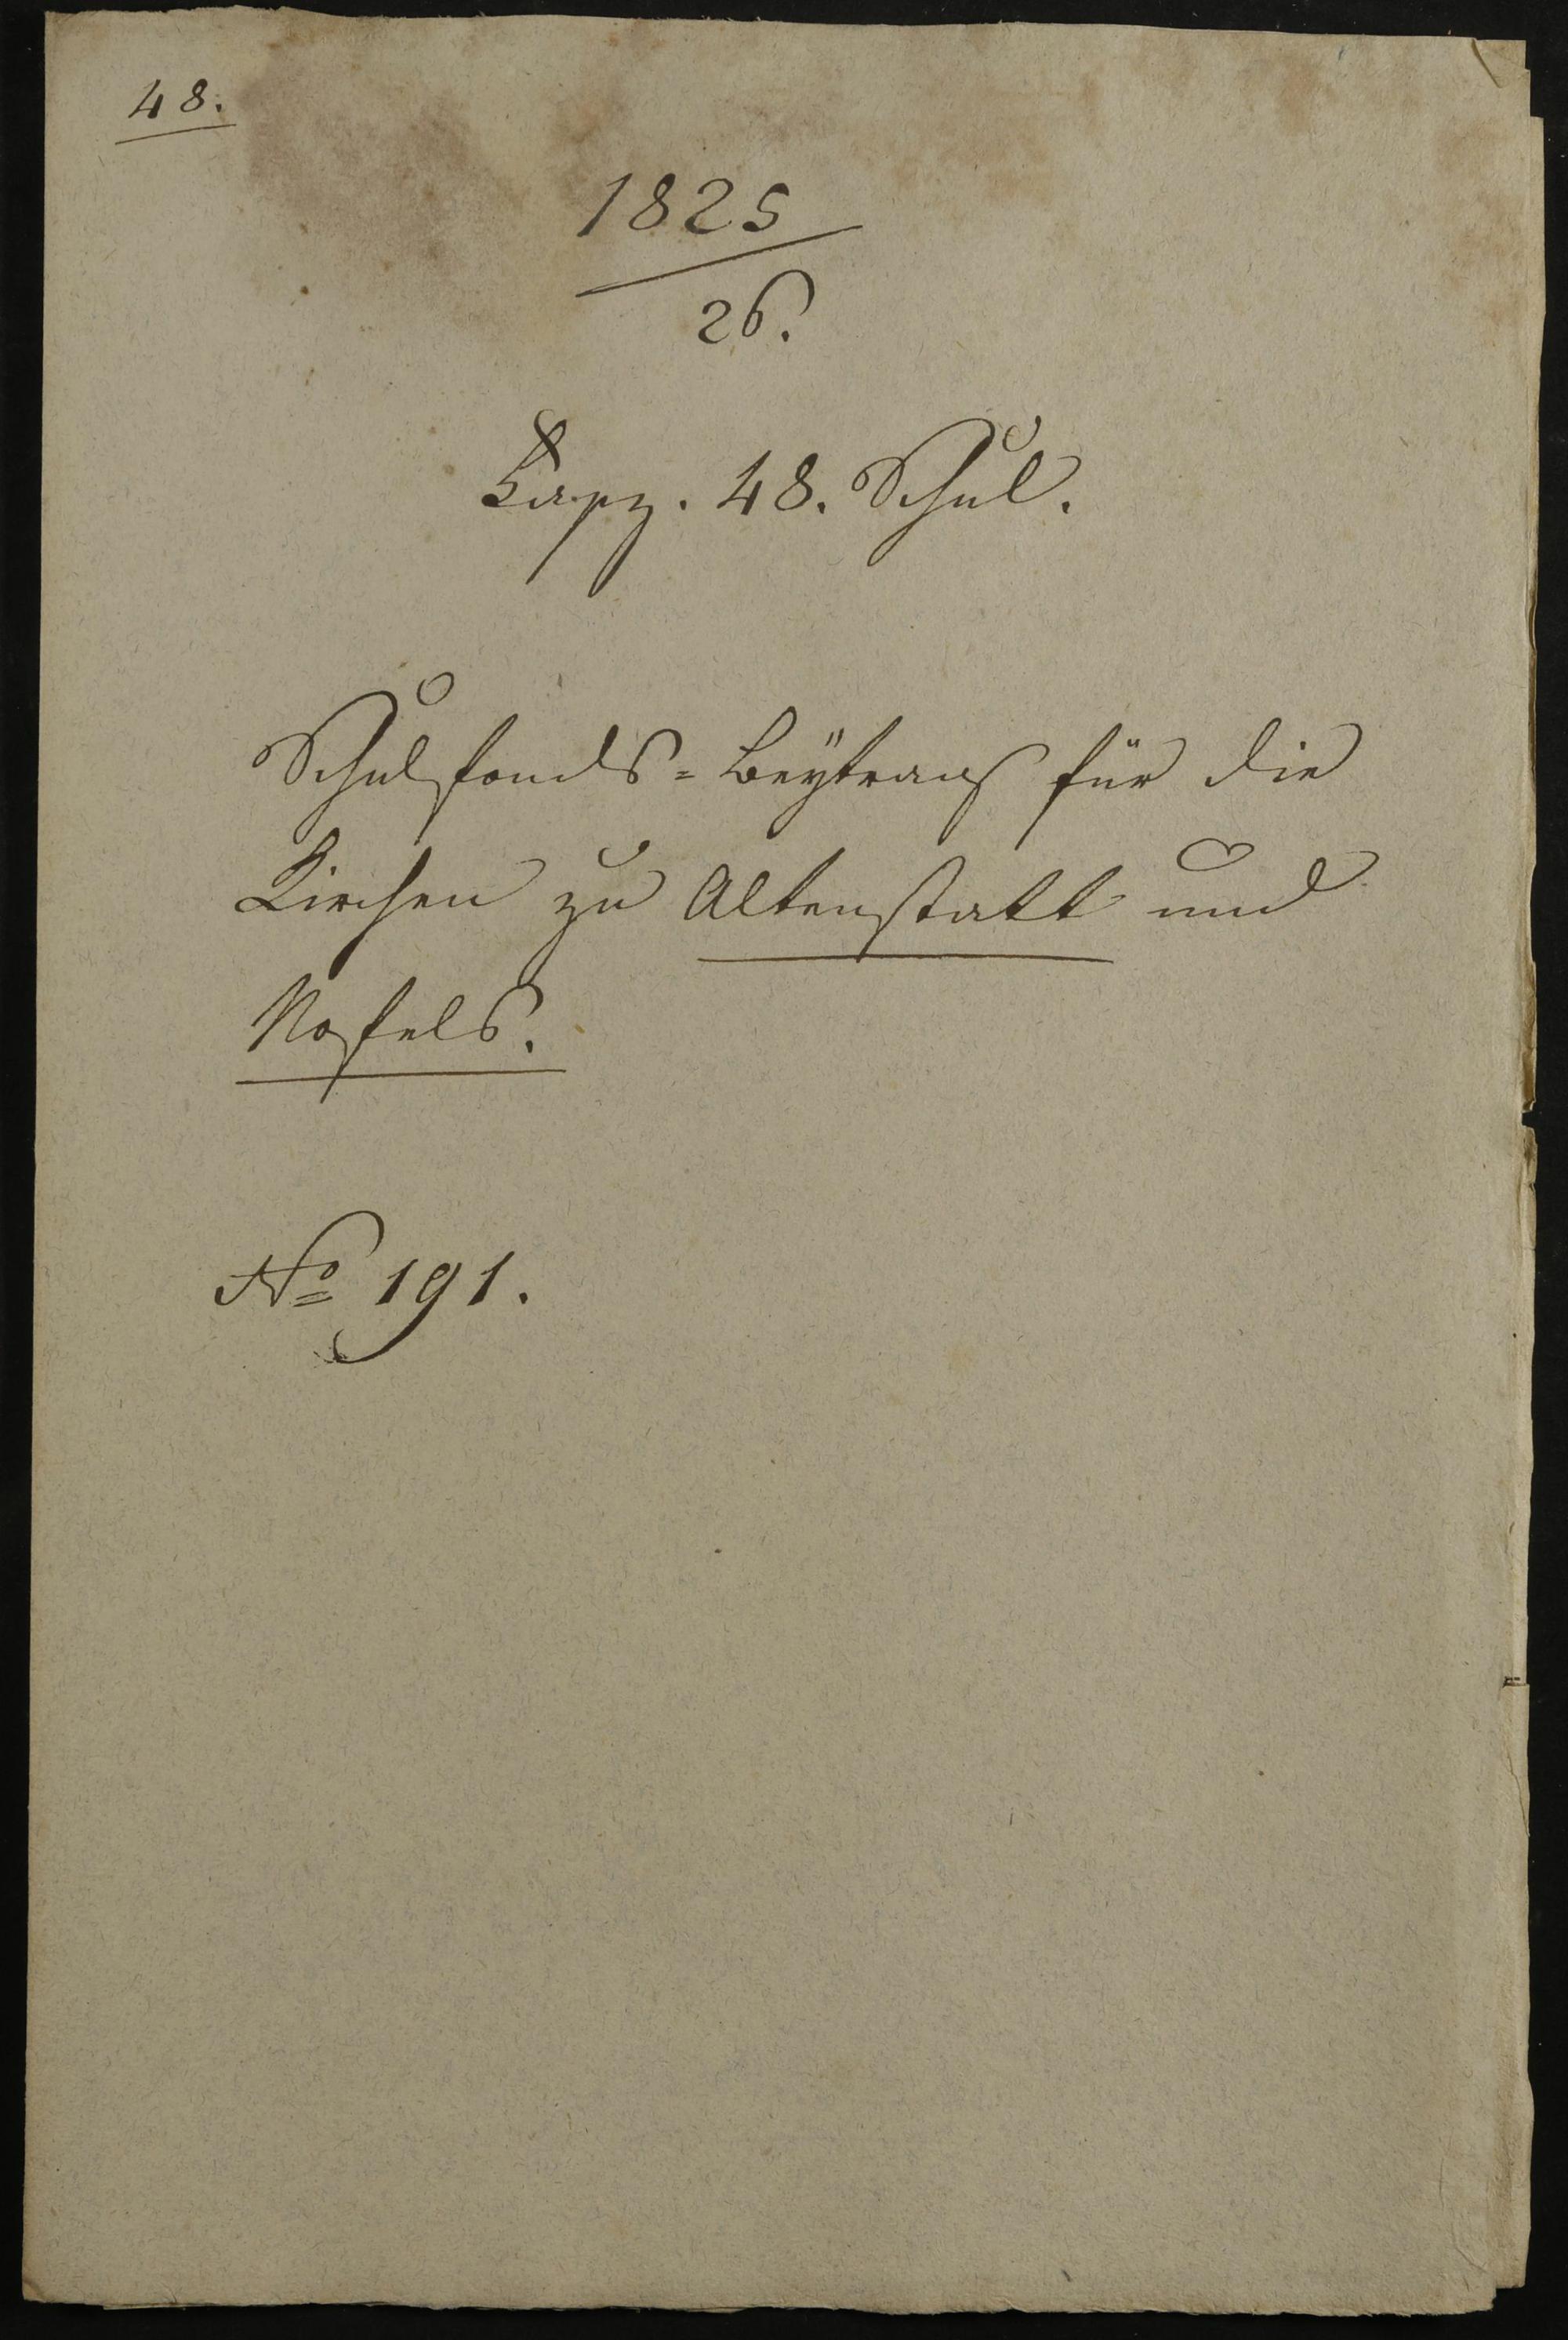 48.
1825
26.
Fasz. 48. Schul.
Schulfonds=Beÿtrag für die
Kirchen zu Altenstatt und
Nofels.
No 191.